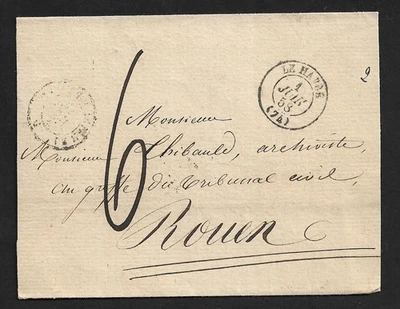 LE HAVRE
1
JUIN
53
(74)
2
6
Monsieur
Monsieur Thibauld, archiviste,
au greffe du Tribunal civil,
Rouen